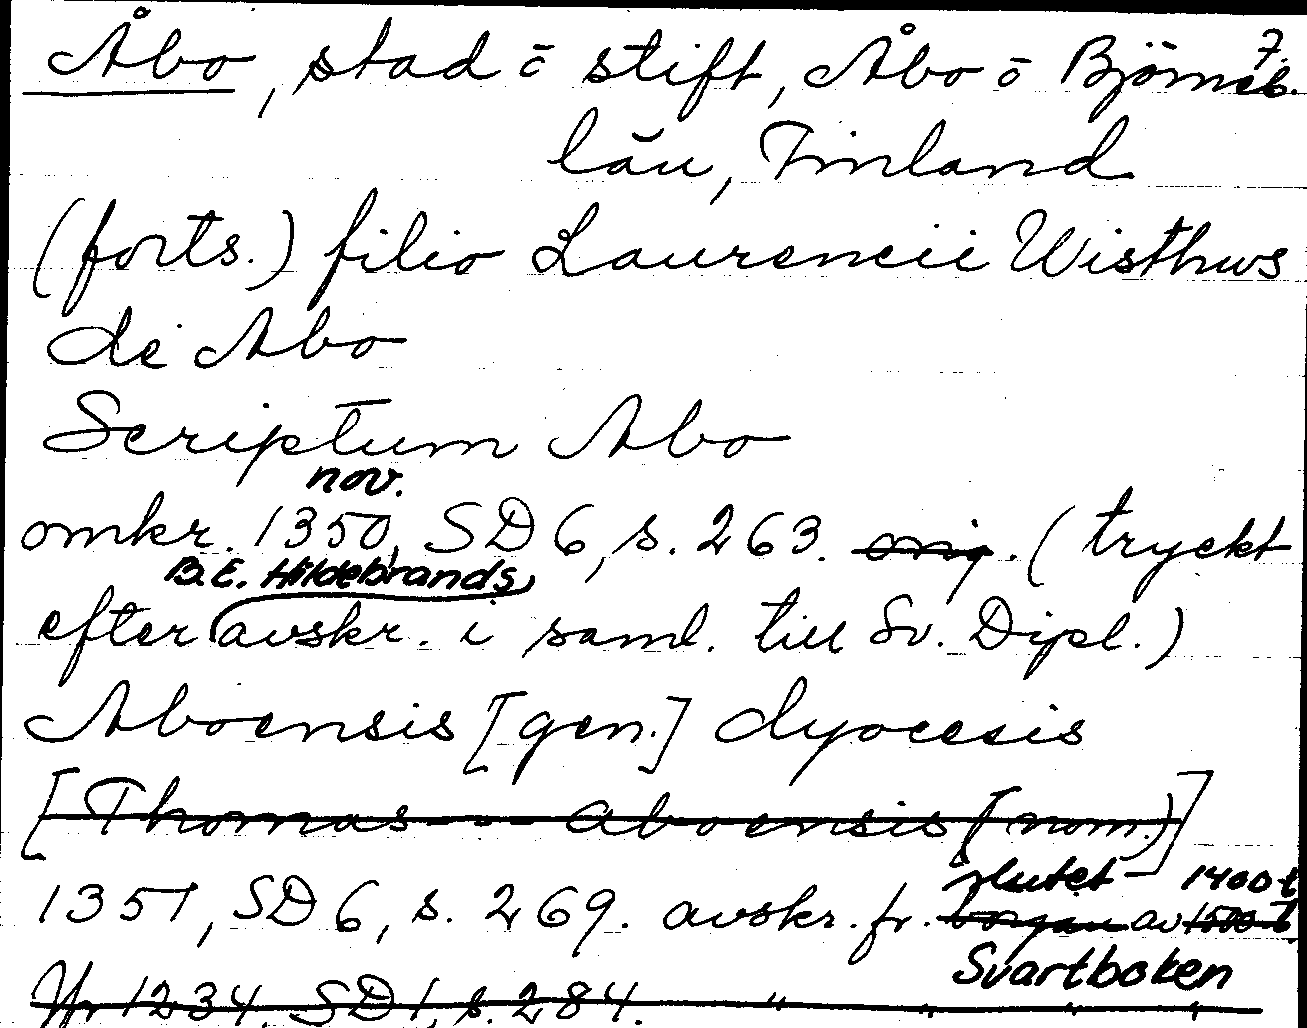 7.
Åbo, stad o stift, Åbo o Björneb.
län, Finland
(forts.) filio Laurencii Wisthws
de Abo
Scriptum Abo
nov.
omkr. 1350, SD 6, s. 263. orig. (tryckt
B.E. Hildebrands
efter avskr. i saml. till Sv. Dipl.)
Aboensis [gen.] dyocesis
[Thomas --- aboensis [nom.]]
slutet 1400-t
1351, SD 6, s. 269. avskr. fr. början av 1500-t
Svartboken
Yr 1234. SD 1, s. 284. " " " "